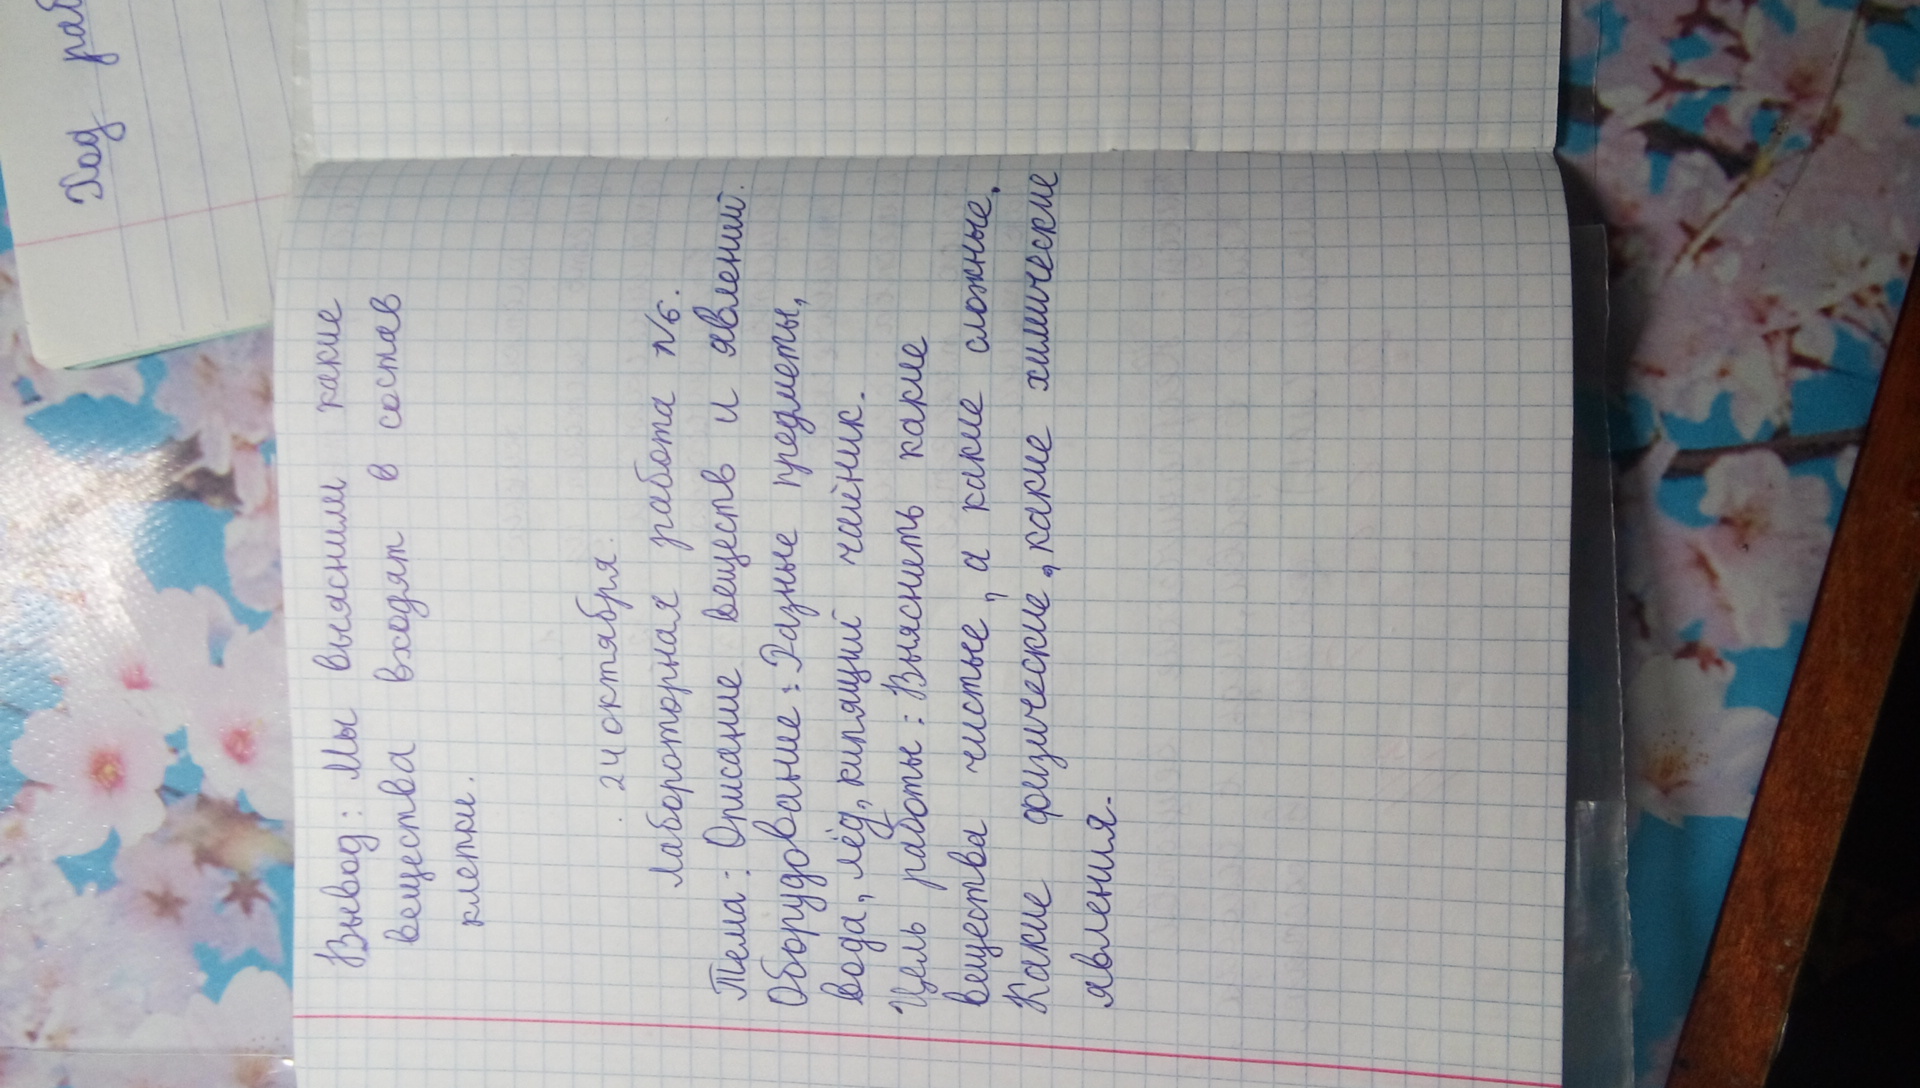 Ход раб
Вывод: Мы выяснили какие
вещества входят в состав
клетки.
24 октября.
Лабороторная работа №6.
Тема: Описание веществ и явлений.
Оборудование: Разные предметы,
вода, лёд, кипящий чайник.
Цель работы: Выяснить какие
вещества чистые, а какие сложные.
Какие физические, какие химические
явления.